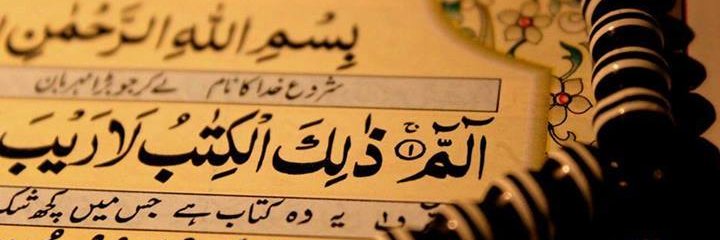 بِسْمِ اللّٰهِ الرَّحْمٰنِ
شروع خدا کا نام لے کر جو بڑا مہربان
الٓمّٓ ۚ ۝۱ ذٰلِكَ الْكِتٰبُ لَا رَيْبَ
یہ وہ کتاب ہے جس میں کچھ شک